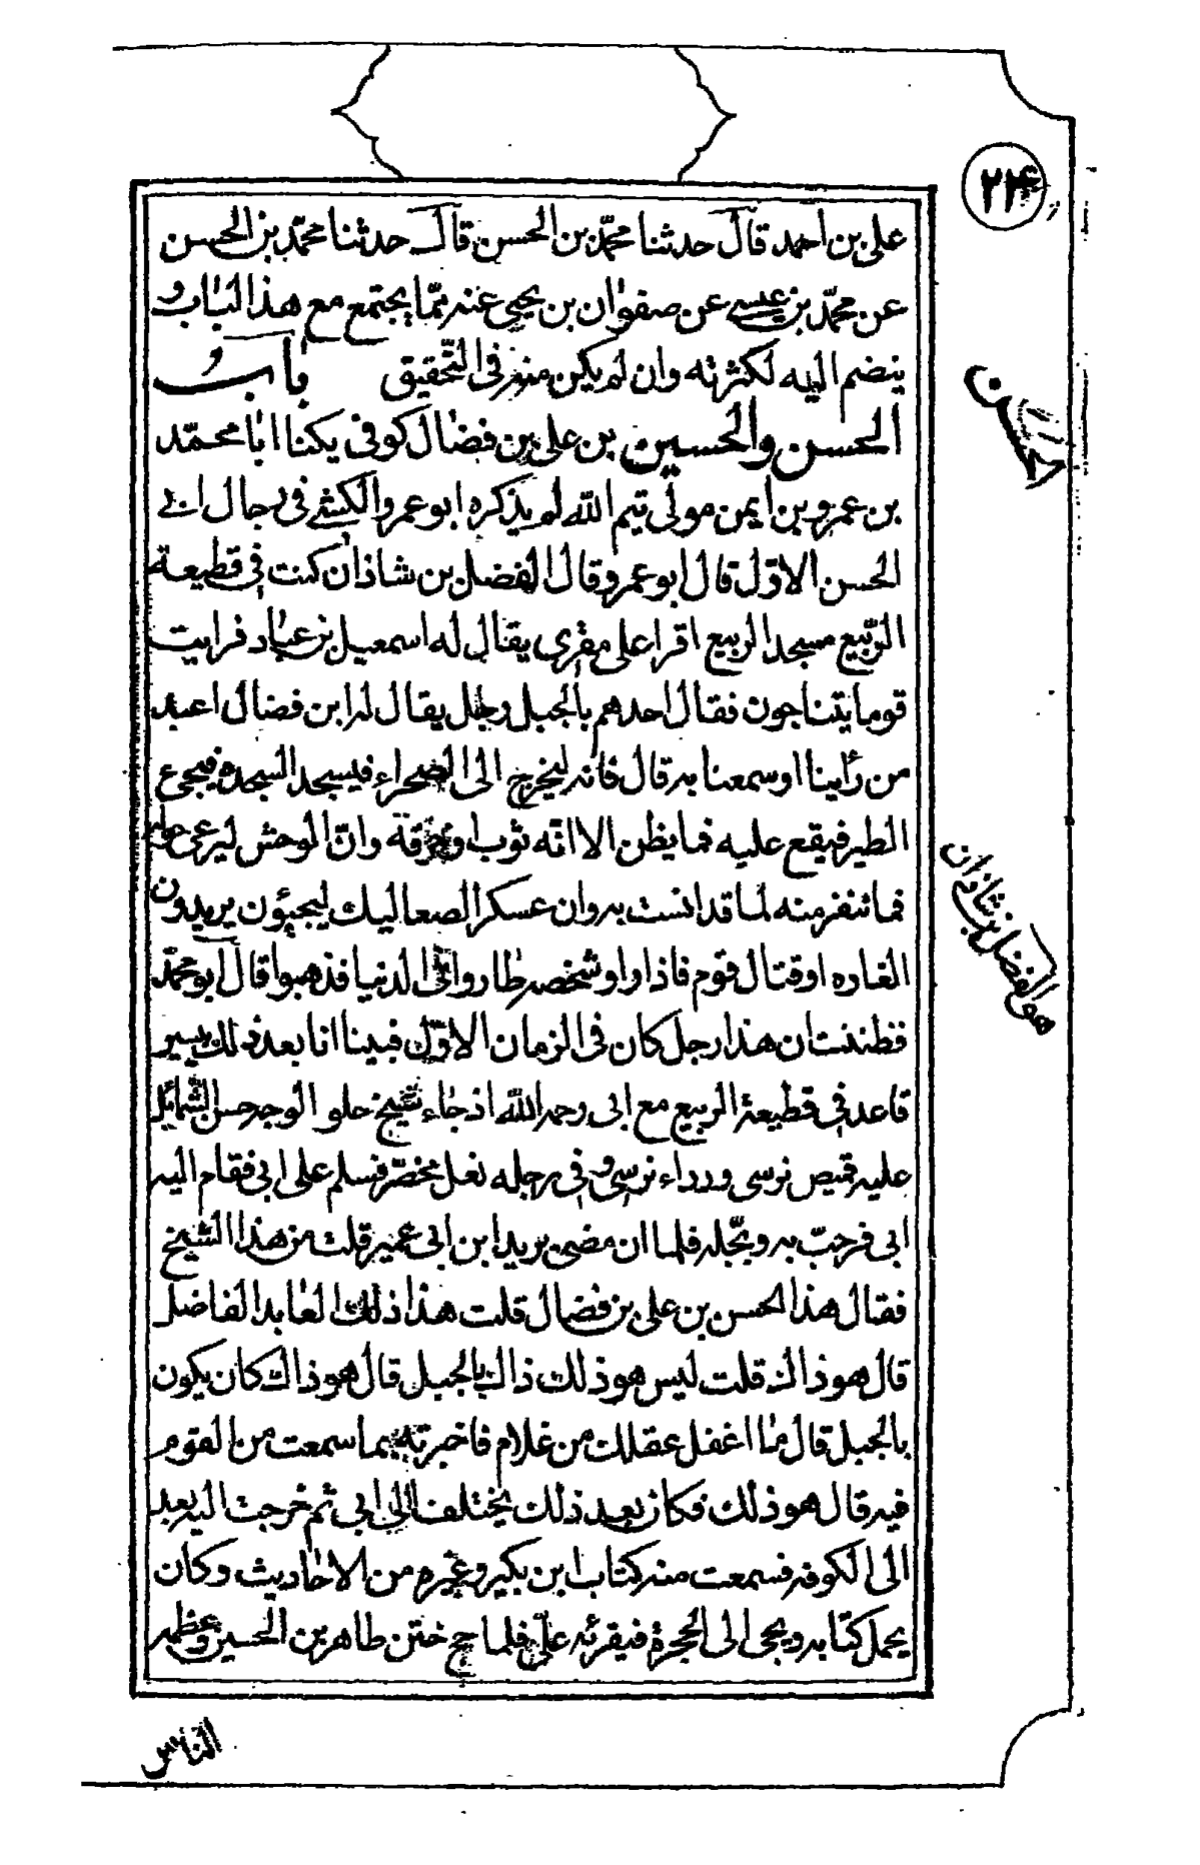 ٢٤
على بن احمد قال حدثنا محمّد بن الحسن قال حدثنا محمّد بن الحسن
عن محمّد بن عيسى عن صفوان بن يحيى عنه ممّا يجتمع مع هذا الباب و
ينضم اليه لكثرته وان لم يكن منه فى التّحقيق باب
الحسن والحسين بن على بن فضال كوفى يكنا ابا محمّد
بن عمرو بن ايمن مولى تيم الله لم يذكره ابو عمرو الكشى فى رجال ابى
الحسن الاوّل قال ابو عمرو قال الفضل بن شاذان كنت فى قطيعة
الرّبيع مسجد الربيع اقرا على مقرى يقال له اسمعيل بن عباد فرايت
قوما يتناجون فقال احدهم بالجبل رجل يقال له ابن فضال اعبد
من رأينا او سمعنا به قال فانه ليخرج الى الصحراء فيسجد السجده فيجئ
الطير فيقع عليه فما يظن الا انّه ثوب او خرقة وانّ الوحش ليرعى حوله
فما تنفر منه لما قد انست به وان عسكر الصعاليك ليجيؤن يريدون
الغاره او قتال قوم فاذا راو شخصه طاروا فى الدنيا فذهبوا قال ابو محمّد
فظننت ان هذا رجل كان فى الزمان الاوّل فبينا انا بعد ذلك بيسير
قاعد فى قطيعة الربيع مع ابى رحمه الله اذ جاء شيخ حلو الوجه حسن الشمائل
عليه قميص نرسى ورداء نرسى وفى رجله نعل مخصّر فسلم على ابى فقام اليه
ابى فرحّب به وبجّله فلما ان مضى يريد ابن ابى عمير قلت من هذا الشيخ
فقال هذا الحسن بن على بن فضال قلت هذا ذلك العابد الفاضل
قال هو ذاك قلت ليس هو ذلك ذاك بالجبل قال هو ذاك كان يكون
بالجبل قال ما اغفل عقلك من غلام فاخبرته بما سمعت من القوم
فيه قال هو ذلك فكان بعد ذلك يختلف الى ابى ثم خرجت اليه بعد
الى الكوفه فسمعت منه كتاب ابن بكير وغيره من الاحاديث وكان
يحمل كتابه ويجى الى الحجرة فيقرئه علىّ فلما حج ختن طاهر بن الحسين وعظمه
الناس
الحسن
هو الفضل بن شاذان